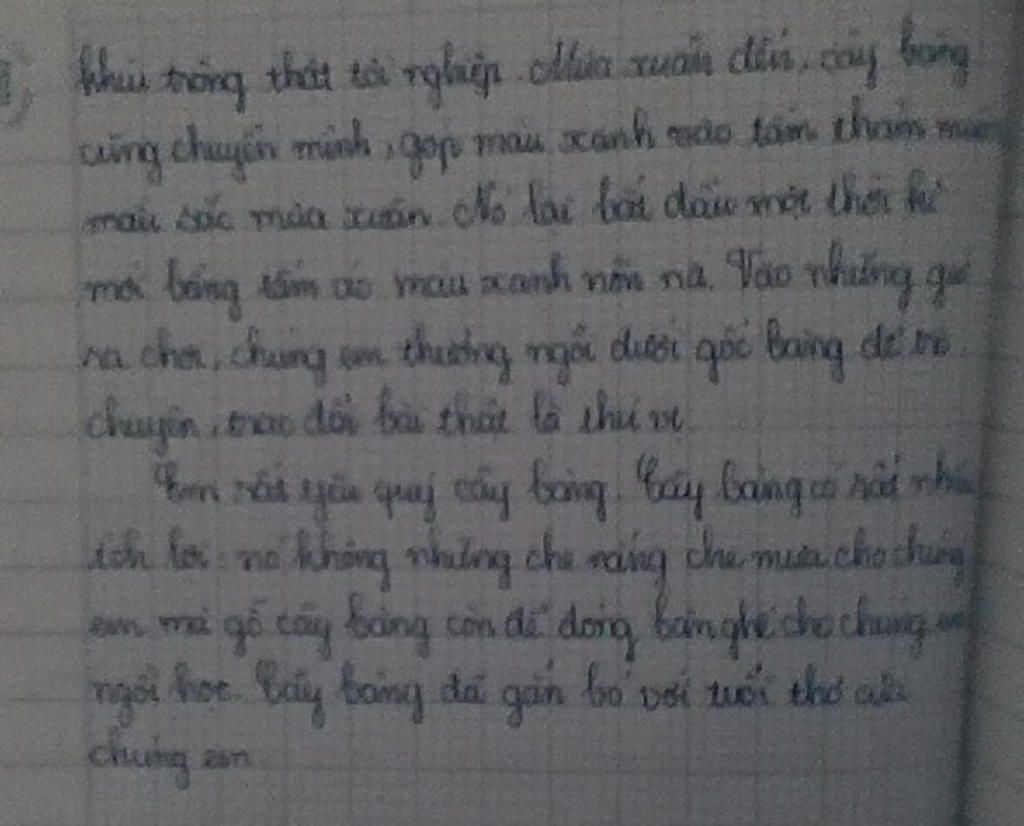 khiu trông thật tội nghiệp. Mùa xuân đến, cây bàng
cũng chuyển mình, góp màu xanh vào tấm thảm muôn
màu sắc mùa xuân. Nó lại bắt đầu một thời kì
mới bằng tấm áo màu xanh nõn nà. Vào những giờ
ra chơi, chúng em thường ngồi dưới gốc bàng để trò
chuyện, trao đổi bài thật là thú vị.
Em rất yêu quý cây bàng. Cây bàng có rất nhiều
ích lợi: nó không những che nắng che mưa cho chúng
em mà gỗ cây bàng còn để đóng bàn ghế cho chúng em
ngồi học. Cây bàng đã gắn bó với tuổi thơ của
chúng em.